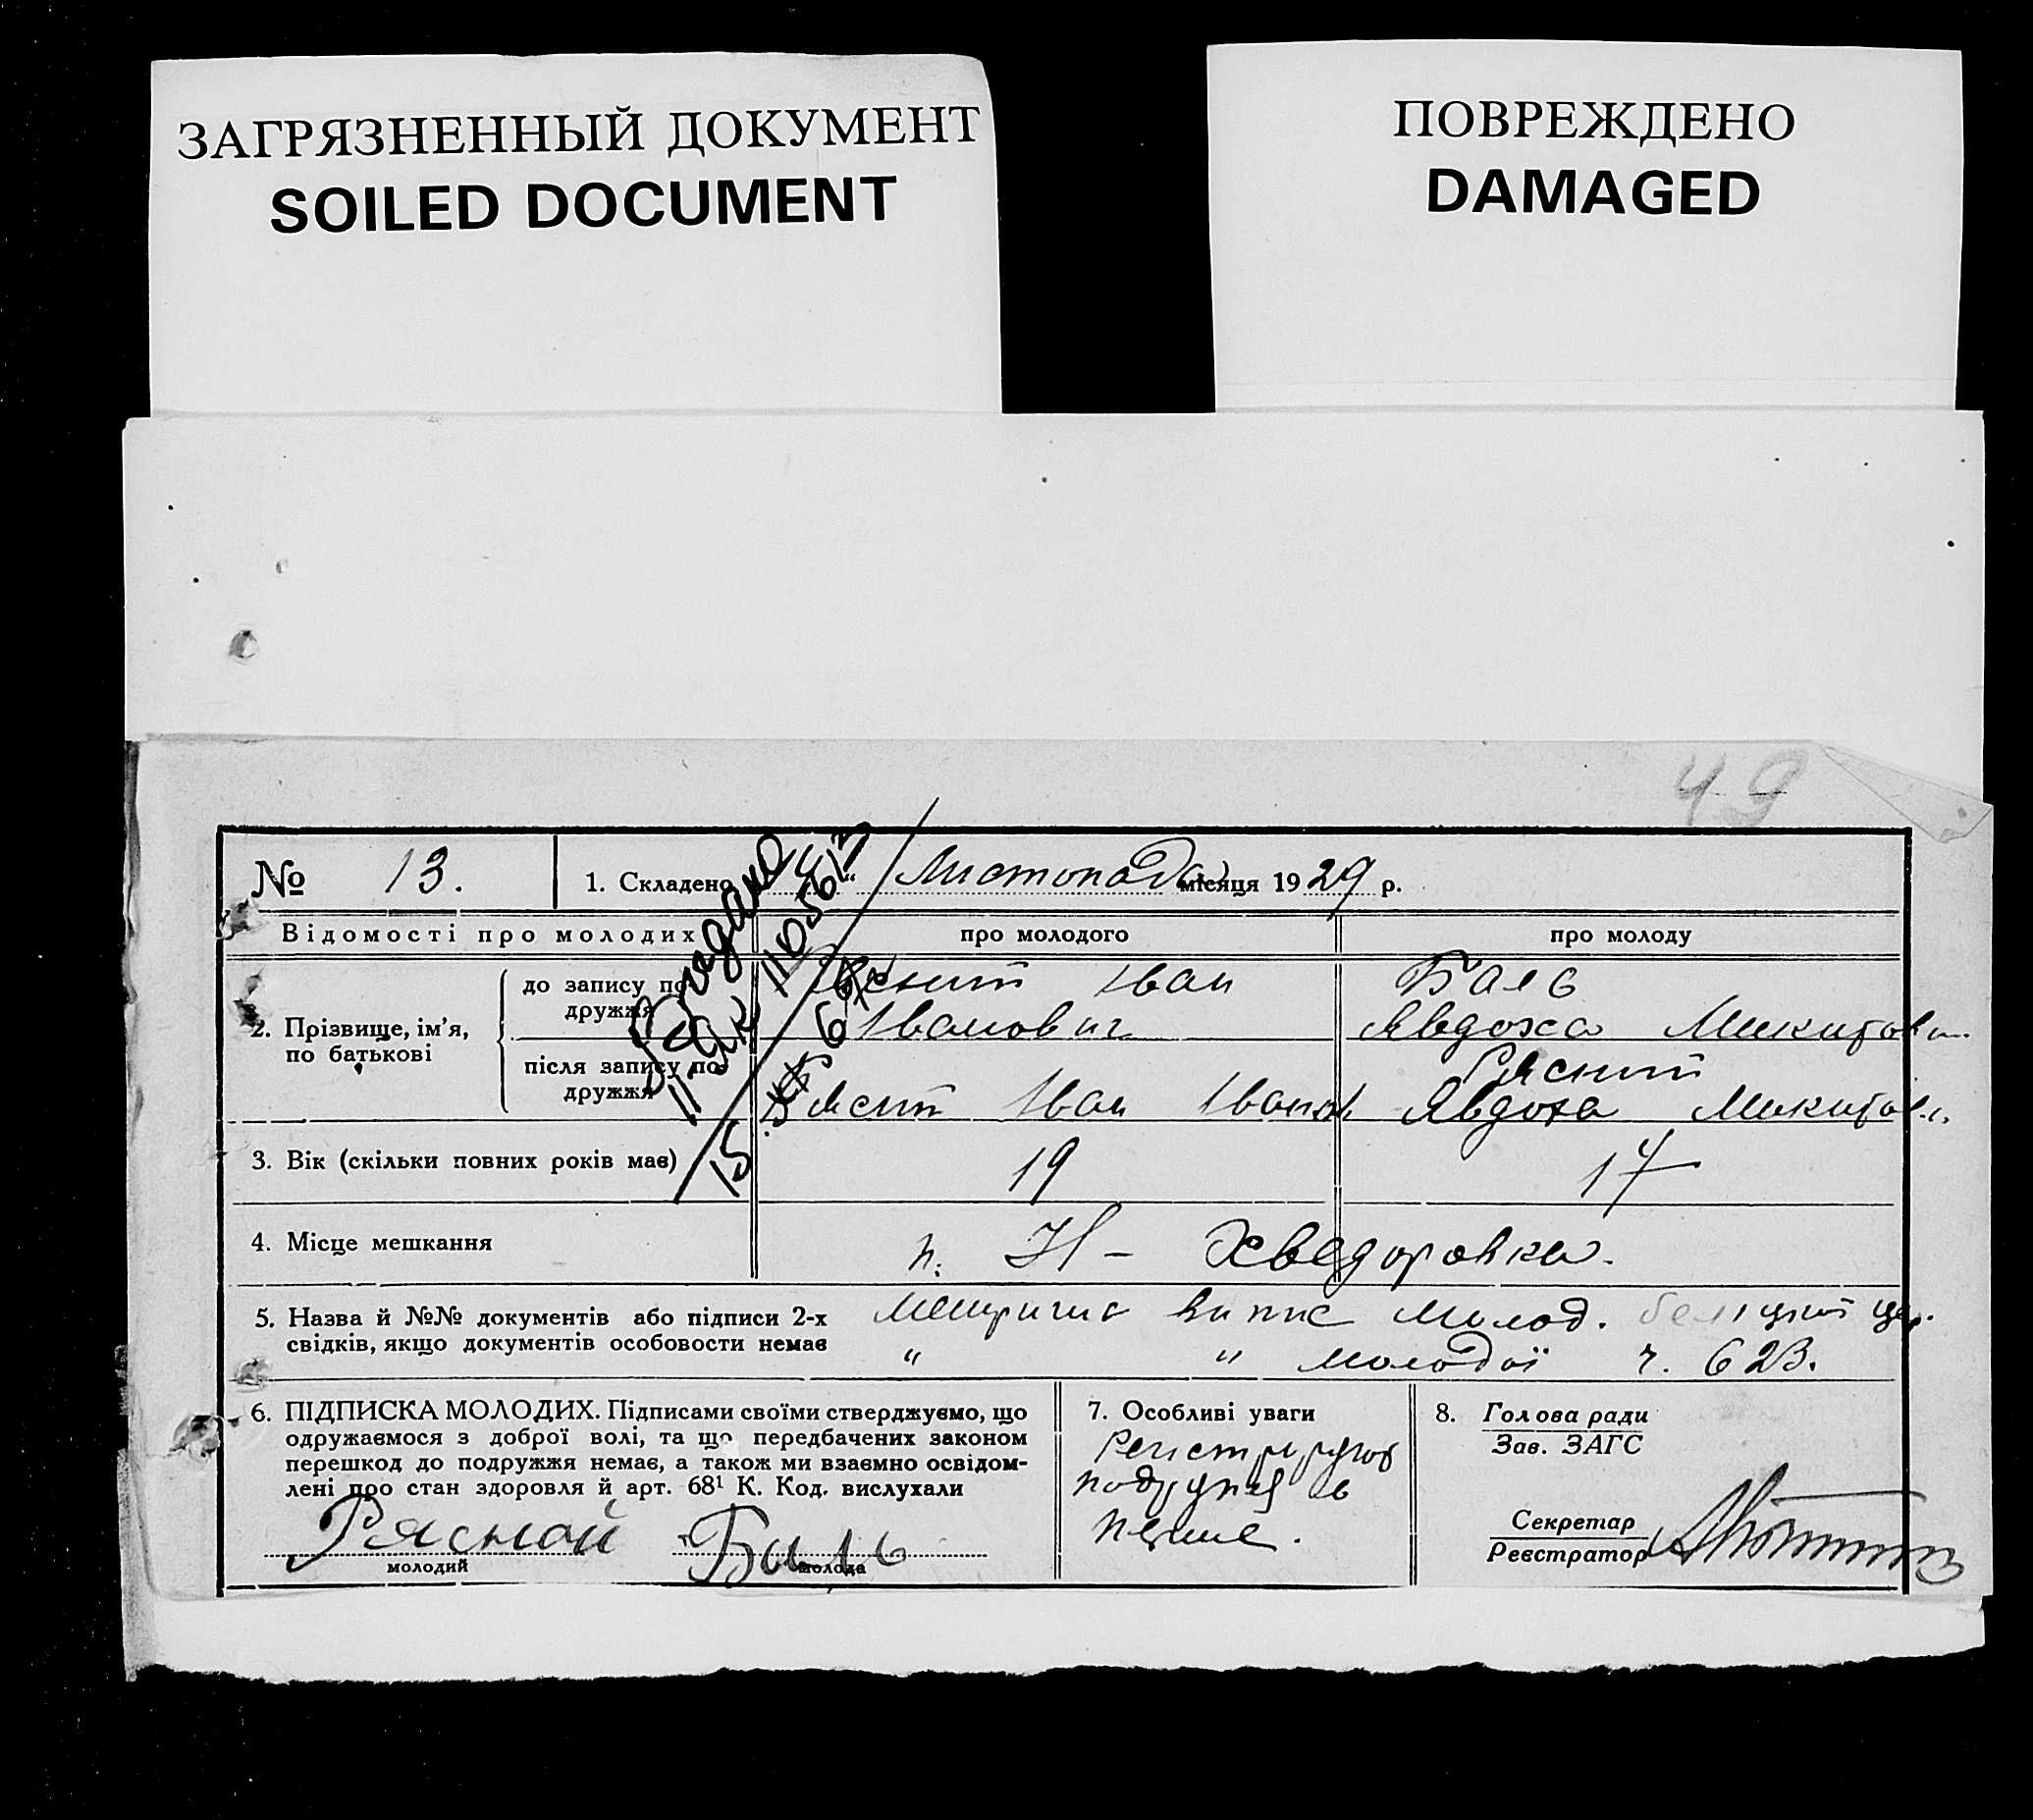 ЗАГРЯЗНЕННЫЙ ДОКУМЕНТ
SOILED DOCUMENT
ПОВРЕЖДЕНО
DAMAGED
49
№ 13.
1. Складено " Листопада місяця 1929 р.
Видано
Відомості про молодих
про молодого
про молоду
2. Прізвище, ім'я, по батькові
до запису подружжя
Іван
Іванович
Баль
Явдоха Микитовн
після запису подружжя
Іван Іванов
Рясний
Явдоха Микитов.
15
3. Вік (скільки повних років має)
19
17
4. Місце мешкання
п. Н- Хведоровка.
5. Назва й №№ документів або підписи 2-х
свідків, якщо документів особовости немає
Метричні випис молод.
" " молодої ч. 623.
6. ПІДПИСКА МОЛОДИХ. Підписами своїми стверджуємо, що
одружаємося з доброї волі, та що передбачених законом
перешкод до подружжя немає, а також ми взаємно освідом-
лені про стан здоровля й арт. 68¹ К. Код. вислухали
Рясной
молодий
Баль
молода
7. Особливі уваги
8. Голова ради
Зав. ЗАГС
Секретар
Реєстратор